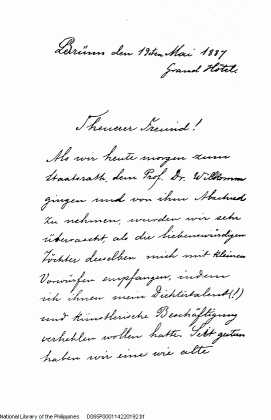 Brünn den 19ten Mai 1887
Grand Hôtel.
Theuerer Freund!
Als wir heute morgen zum
Staatsrath, dem Prof. Dr. Willkomm
gingen und von ihm Abschied
zu nehmen, wurden wir sehr
überrascht, als die liebenswürdigen
Töchter desselben mich mit kleinen
Vorwürfen empfangen, indem
ich ihnen mein Dichtertalent (!)
und künstlerische Beschäftigung
verhehlen wollen hatte. Seit gestern
haben wir eine wie alte
National Library of the Philippines